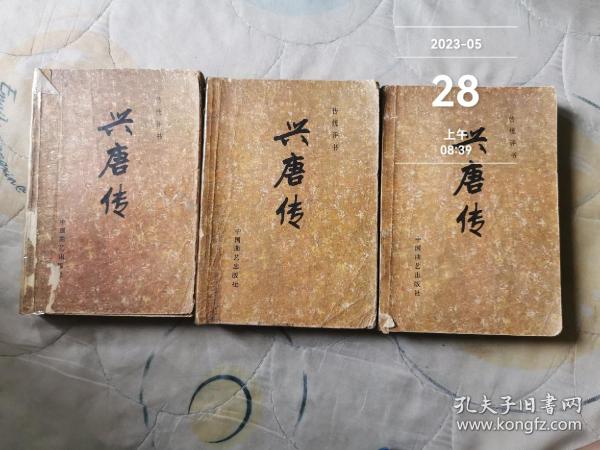 传统评书
兴唐传
中国曲艺出版社
传统评书
兴唐传
中国曲艺出版社
传统评书
兴唐传
中国曲艺出版社
2023-05
28
上午
08:39
孔夫子旧书网
www.kongfz.com